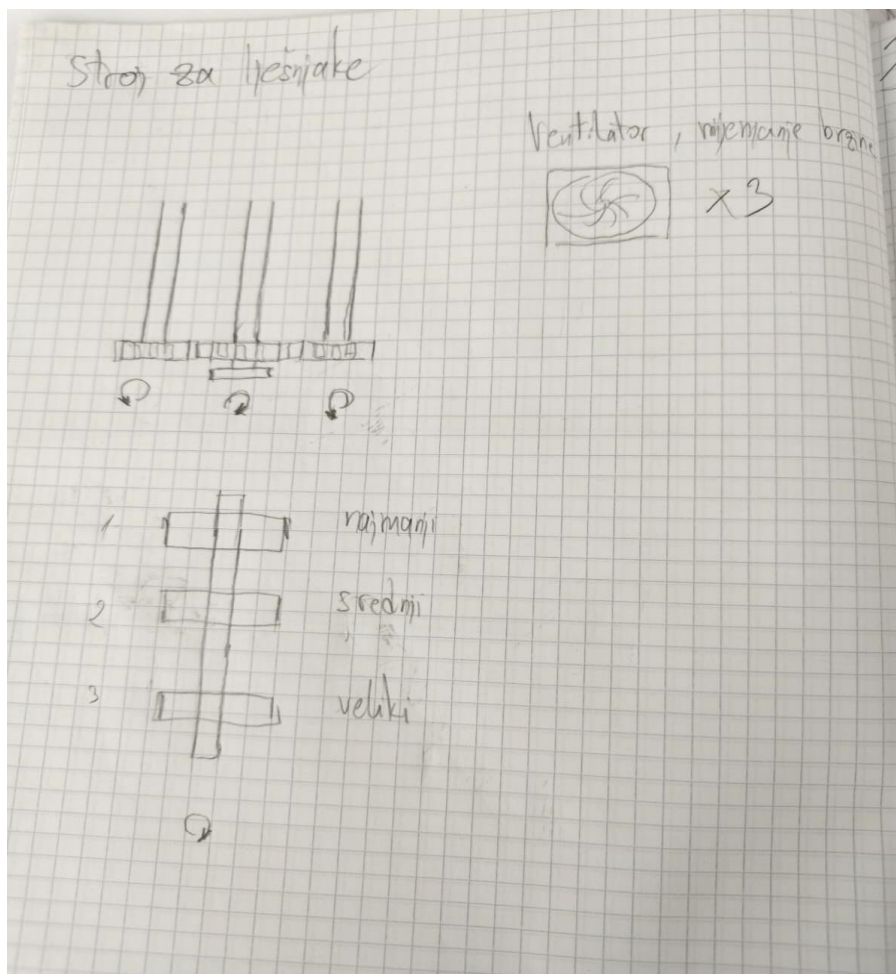 Stroj za lješnjake
Ventilator, mijenjanje brzine
x3
1 najmanji
2 srednji
3 veliki